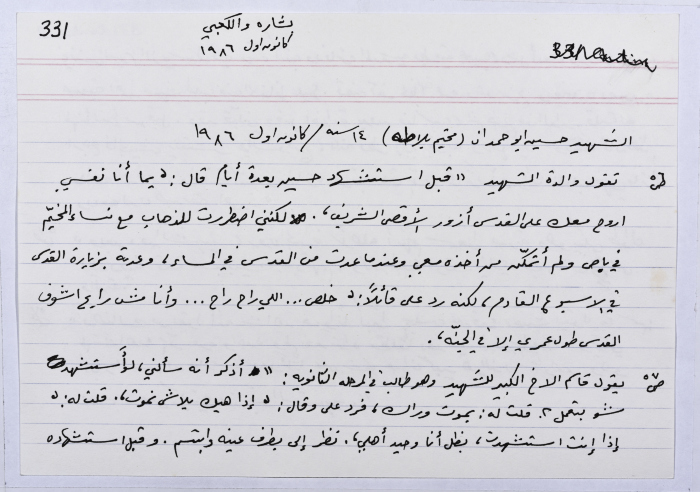 331
بشاره واللكبي
كانون اول ١٩٨٦
331/
الشهيد حسين ابو حمدان (مخيم بلاطه) ١٤ سنه / كانون اول ١٩٨٦
تقول والدة الشهيد "قبل استشهاد حسين بعدة أيام قال: يما أنا نفسي
اروح معك على القدس أزور الأقصى الشريف، لكنني اضطررت للذهاب مع نساء المخيّم
في باص ولم أتمكّن من أخذه معي وعندما عدت من القدس في المساء، وعدته بزيارة القدس
في الاسبوع القادم، لكنه رد علي قائلاً: خلص... اللي راح راح... وأنا مش رايح اشوف
القدس طول عمري إلا في الجنّه،
يقول قاسم الاخ الكبير للشهيد وهو طالب في المرحله الثانويه: " أذكر أنه سألني، لو أستشهد
شو بتعمل؟ قلت له: بموت وراك، فرد علي وقال: إذا هيك بلاش نموت، قلت له:
إذا إنت استشهدت، بظل أنا وحيد أهلي، نظر إلي بطرف عينه وابتسم. وقبل استشهاده